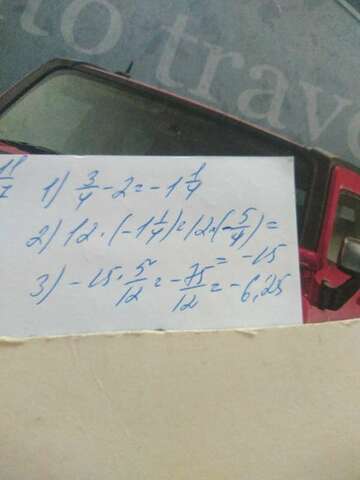 to trave
11/7
1) 3/4 - 2 = -1 1/4
2) 12 · (-1 1/4) = 12 · (-5/4) =
= -15
3) -15 · 5/12 = -75/12 = -6,25